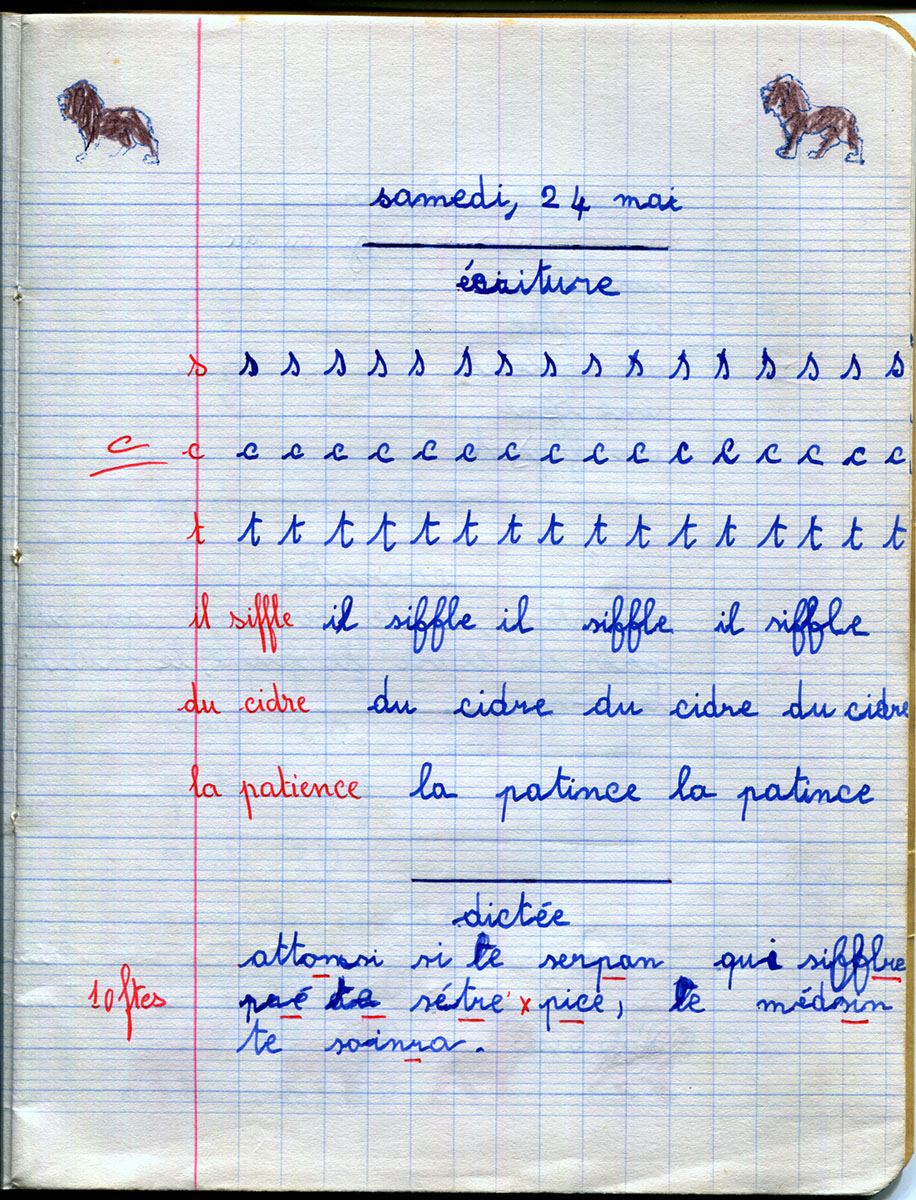 samedi, 24 mai
écriture
s s s s s s s s s s s s s s s s s
c c c c c c c c c c c c c c c c c c
t t t t t t t t t t t t t t t t t
il siffle il siffle il siffle il siffle
du cidre du cidre du cidre du cidre
la patience la patince la patince
dictée
attomsi si le serpan qui sifflre
10 ftes pué ta sétre x pice, le médsin
te soinra.